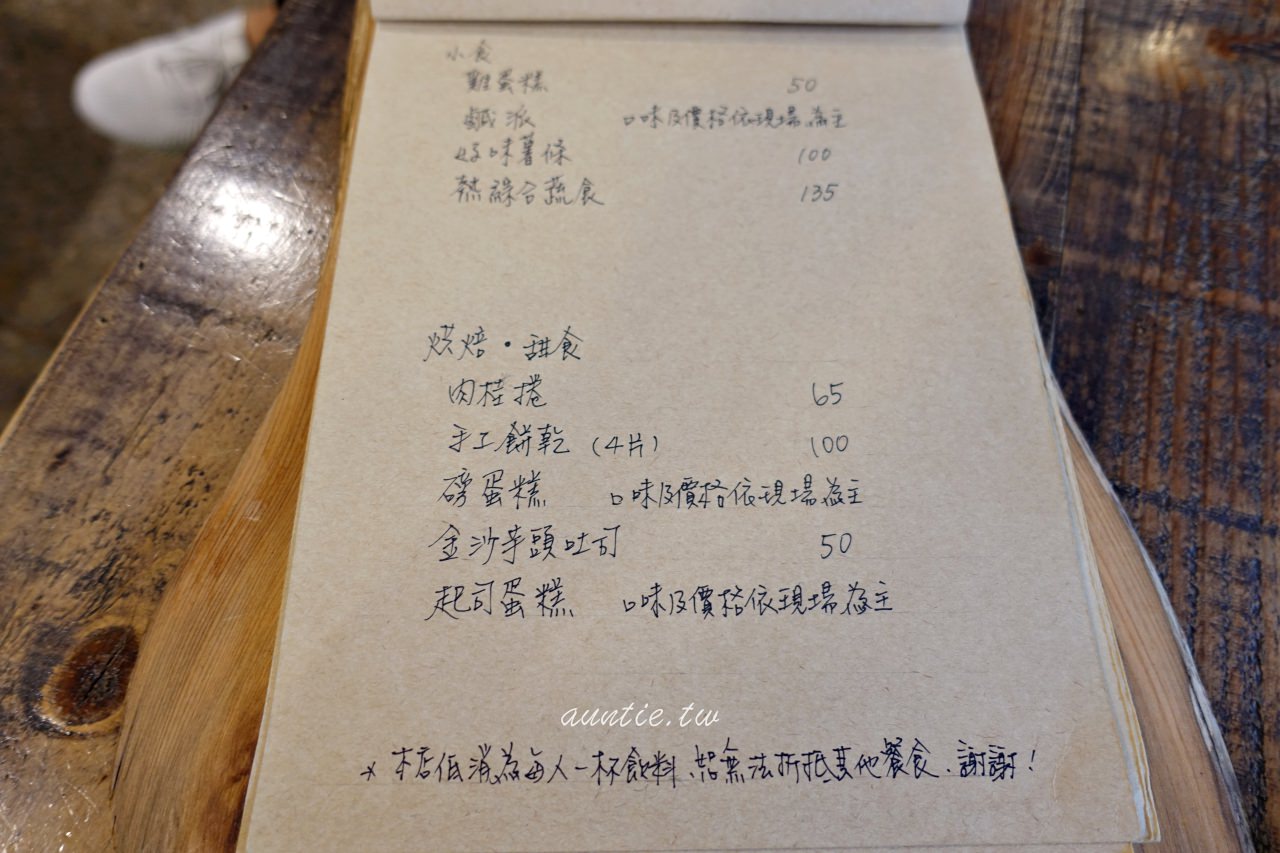 小食
雞蛋糕 50
鹹派 口味及價格依現場為主
好味薯條 100
熱綜合蔬食 135
烘焙・甜食
肉桂捲 65
手工餅乾 (4片) 100
磅蛋糕 口味及價格依現場為主
金沙芋頭吐司 50
起司蛋糕 口味及價格依現場為主
auntie.tw
* 本店低消為每人一杯飲料、恕無法折抵其他餐食、謝謝!